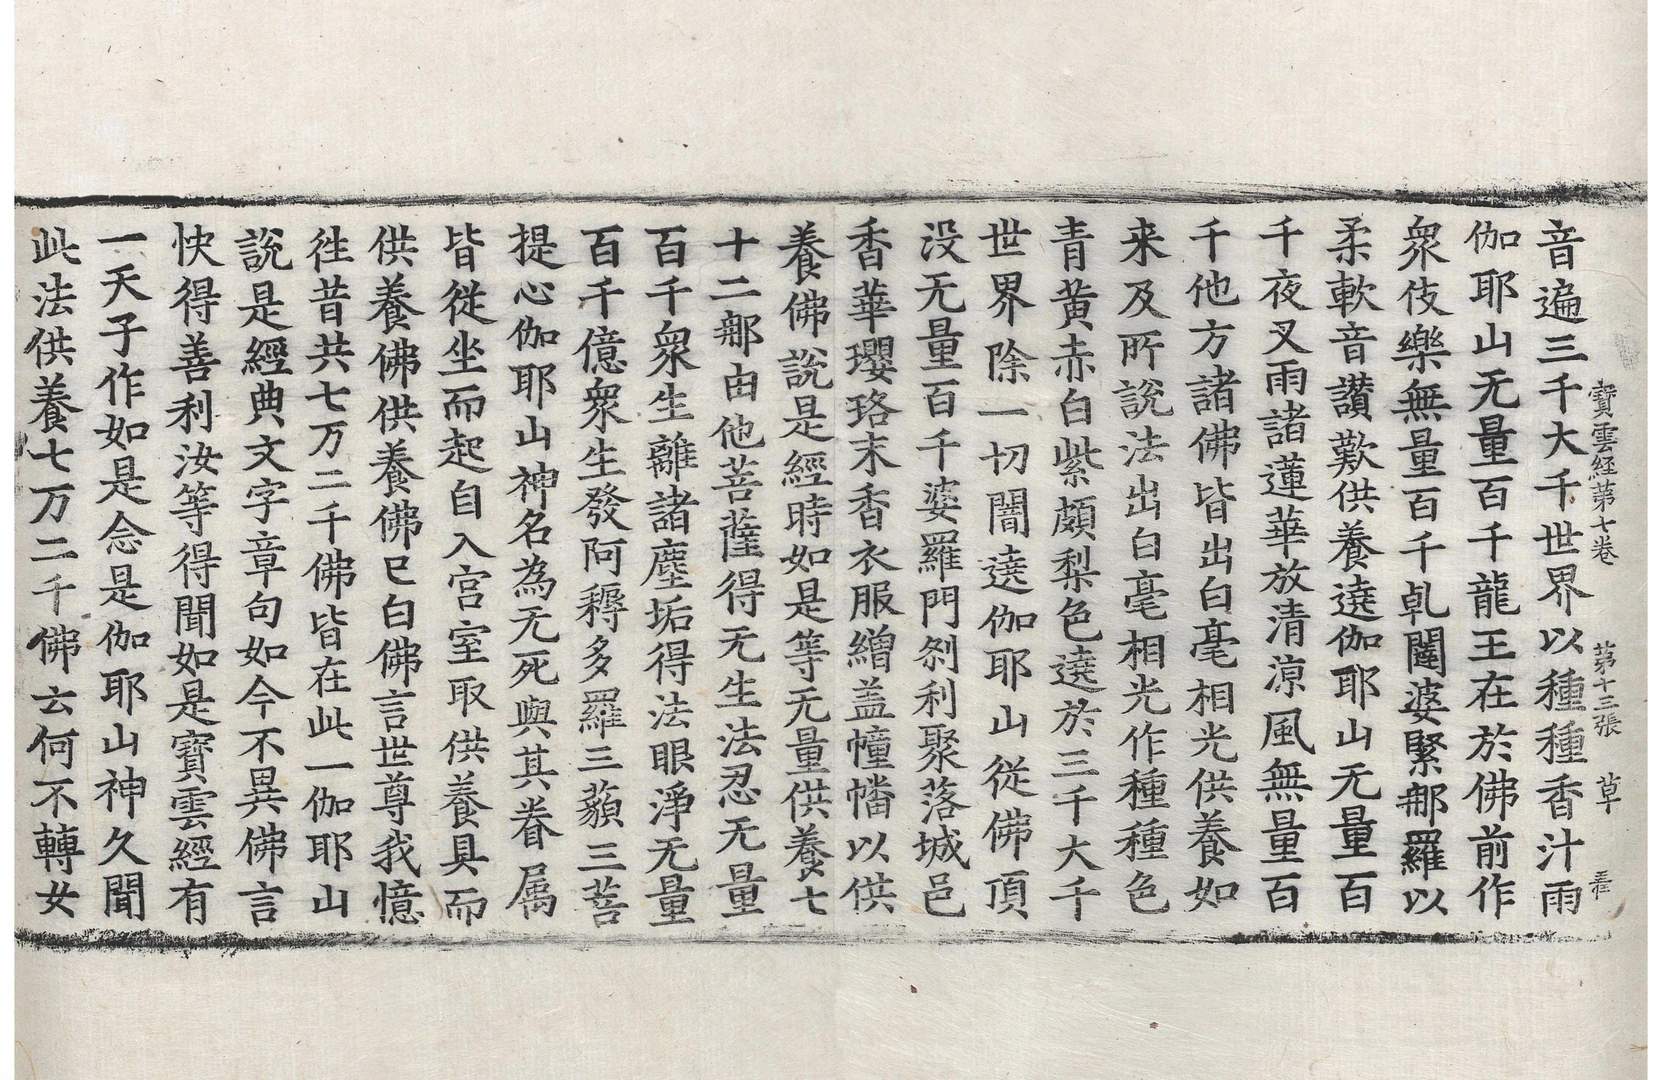 寶雲経第七卷　第十三張　草
音遍三千大千世界以種種香汁雨
伽耶山无量百千龍王在於佛前作
衆伎樂無量百千乹闥婆緊那羅以
柔軟音讃歎供養遶伽耶山无量百
千夜叉雨諸蓮華放清涼風無量百
千他方諸佛皆出白毫相光供養如
来及所說法出白毫相光作種種色
青黄赤白紫頗梨色遶於三千大千
世界除一切闇遶伽耶山従佛頂
没无量百千婆羅門剎利聚落城邑
香華瓔珞末香衣服繒盖幢幡以供
養佛說是經時如是等无量供養七
十二那由他菩薩得无生法忍无量
百千衆生離諸塵垢得法眼淨无量
百千億衆生發阿耨多羅三藐三菩
提心伽耶山神名為无死與其眷属
皆従坐而起自入宫室取供養具而
供養佛供養佛已白佛言世尊我憶
徃昔共七万二千佛皆在此一伽耶山
說是經典文字章句如今不異佛言
快得善利汝等得聞如是寶雲經有
一天子作如是念是伽耶山神久聞
此法供養七万二千佛云何不轉女